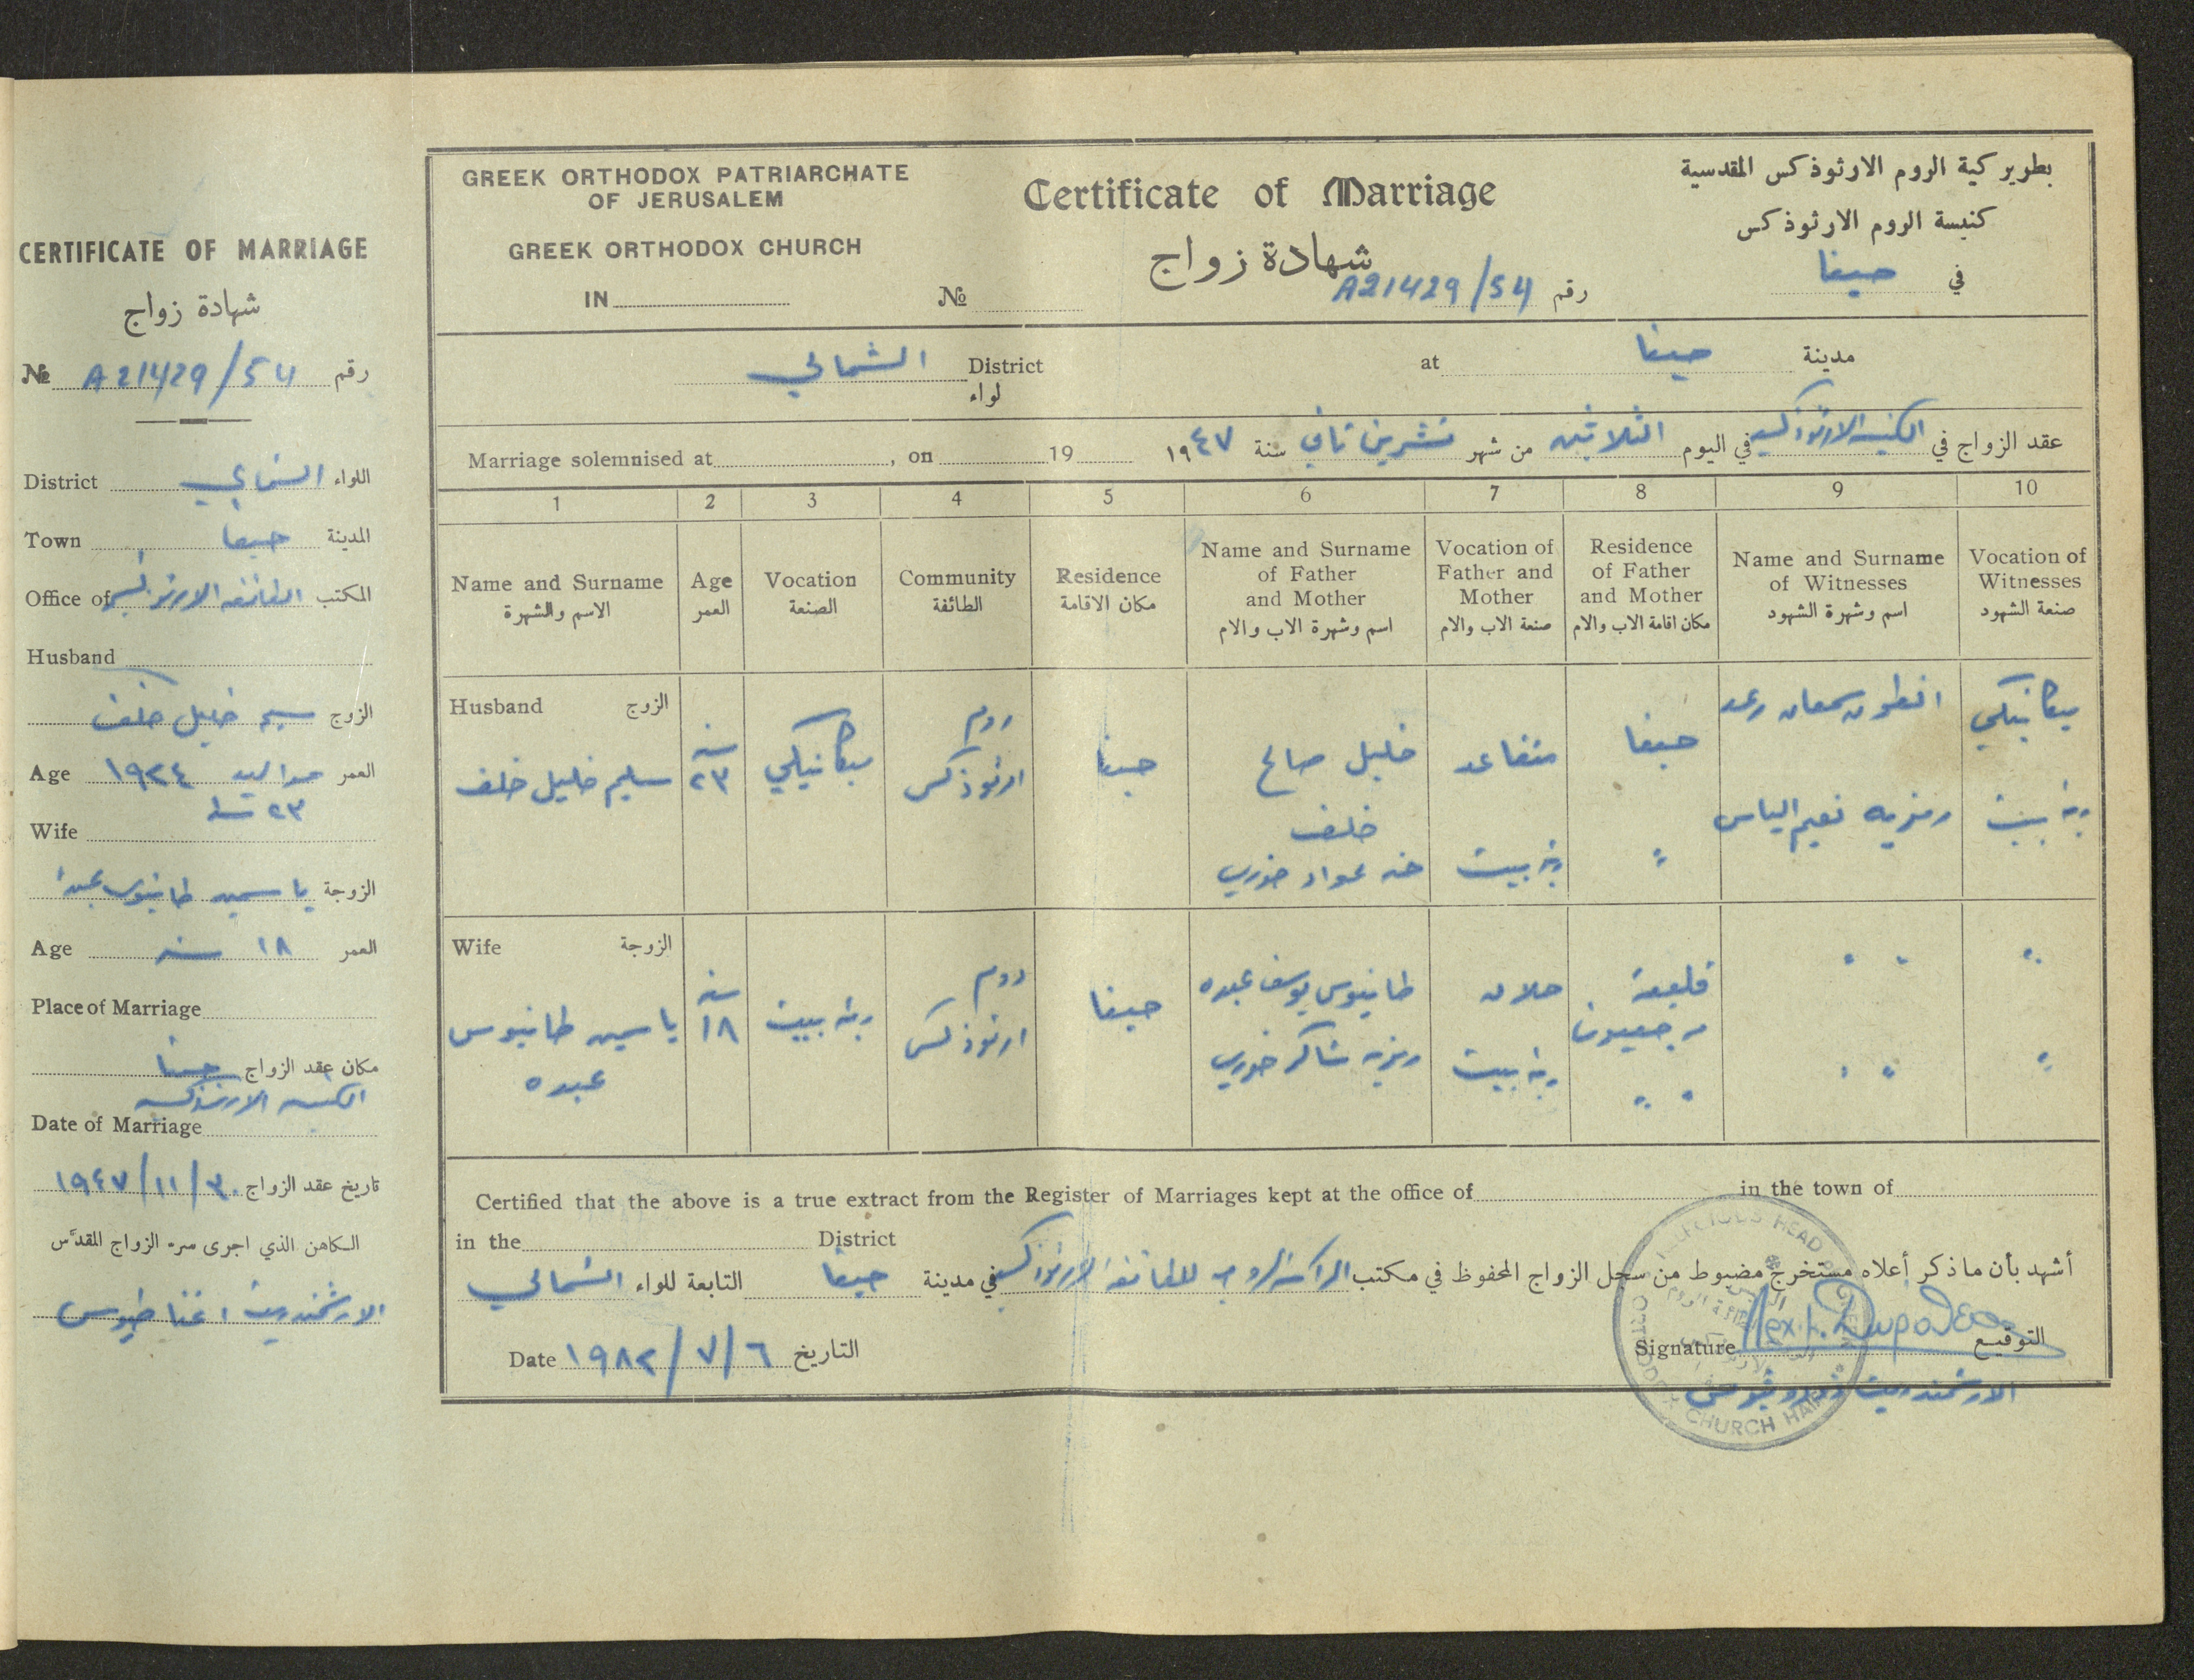 CERTIFICATE OF MARRIAGE
شهادة زواج
№ A21429/54 رقم
District الشمالي اللواء
Town حيفا المدينة
Office of الطائفه الارثوذكسيه المكتب
Husband
الزوج سليم خليل خلف
Age مواليد ١٩٢٤ العمر
٢٣ سنة
Wife
الزوجة ياسمين طانيوس عبده
Age ١٨ سنه العمر
Place of Marriage
مكان عقد الزواج حيفا
الكنيسه الارثوذكسيه
Date of Marriage
تاريخ عقد الزواج ٣٠/١١/١٩٤٧
الكاهن الذي اجرى سر الزواج المقدّس
الارشمندريت اغناطيوس
GREEK ORTHODOX PATRIARCHATE
OF JERUSALEM
GREEK ORTHODOX CHURCH
IN
Certificate of Marriage
شهادة زواج
№ A21429/54 رقم
بطوير كية الروم الارثوذكس المقدسية
كنيسة الروم الارثوذكس
في حيفا
District الشمالي
لواء
at حيفا مدينة
Marriage solemnised at , on 19
عقد الزواج في الكنيسه الارثوذكسيه في اليوم الثلاثين من شهر تشرين ثاني سنة ١٩٤٧
1 2 3 4 5 6 7 8 9 10
Name and Surname
الاسم والشهرة
Age
العمر
Vocation
الصنعة
Community
الطائفة
Residence
مكان الاقامة
Name and Surname
of Father
and Mother
اسم وشهرة الاب والام
Vocation of
Father and
Mother
صنعة الاب والام
Residence
of Father
and Mother
مكان اقامة الاب والام
Name and Surname
of Witnesses
اسم وشهرة الشهود
Vocation of
Witnesses
صنعة الشهود
Husband الزوج
سليم خليل خلف
سنه
٢٣
ميكانيكي
روم
ارثوذكس
حيفا
خليل صالح
خلف
حنه عواد خوري
متقاعد
ربة بيت
حيفا
"
انطون سمعان رعد
رمزيه نعيم الياس
ميكانيكي
ربة بيت
Wife الزوجة
ياسمين طانيوس
عبده
سنه
١٨
ربة بيت
روم
ارثوذكس
حيفا
طانيوس يوسف عبده
رمزيه شاكر خوري
حلاق
ربة بيت
قليعة
مرجعيون
" "
" "
" "
"
"
Certified that the above is a true extract from the Register of Marriages kept at the office of in the town of
in the District
أشهد بأن ما ذكر أعلاه مستخرج مضبوط من سجل الزواج المحفوظ في مكتب الرآسة الروحيه للطائفه الارثوذكسيه في مدينة حيفا التابعة للواء الشمالي
Date ٦/٧/١٩٨٢ التاريخ
Signature التوقيع
الارشمندريت
RELIGIOUS HEAD OF GREEK ORTHODOX CHURCH HAIFA